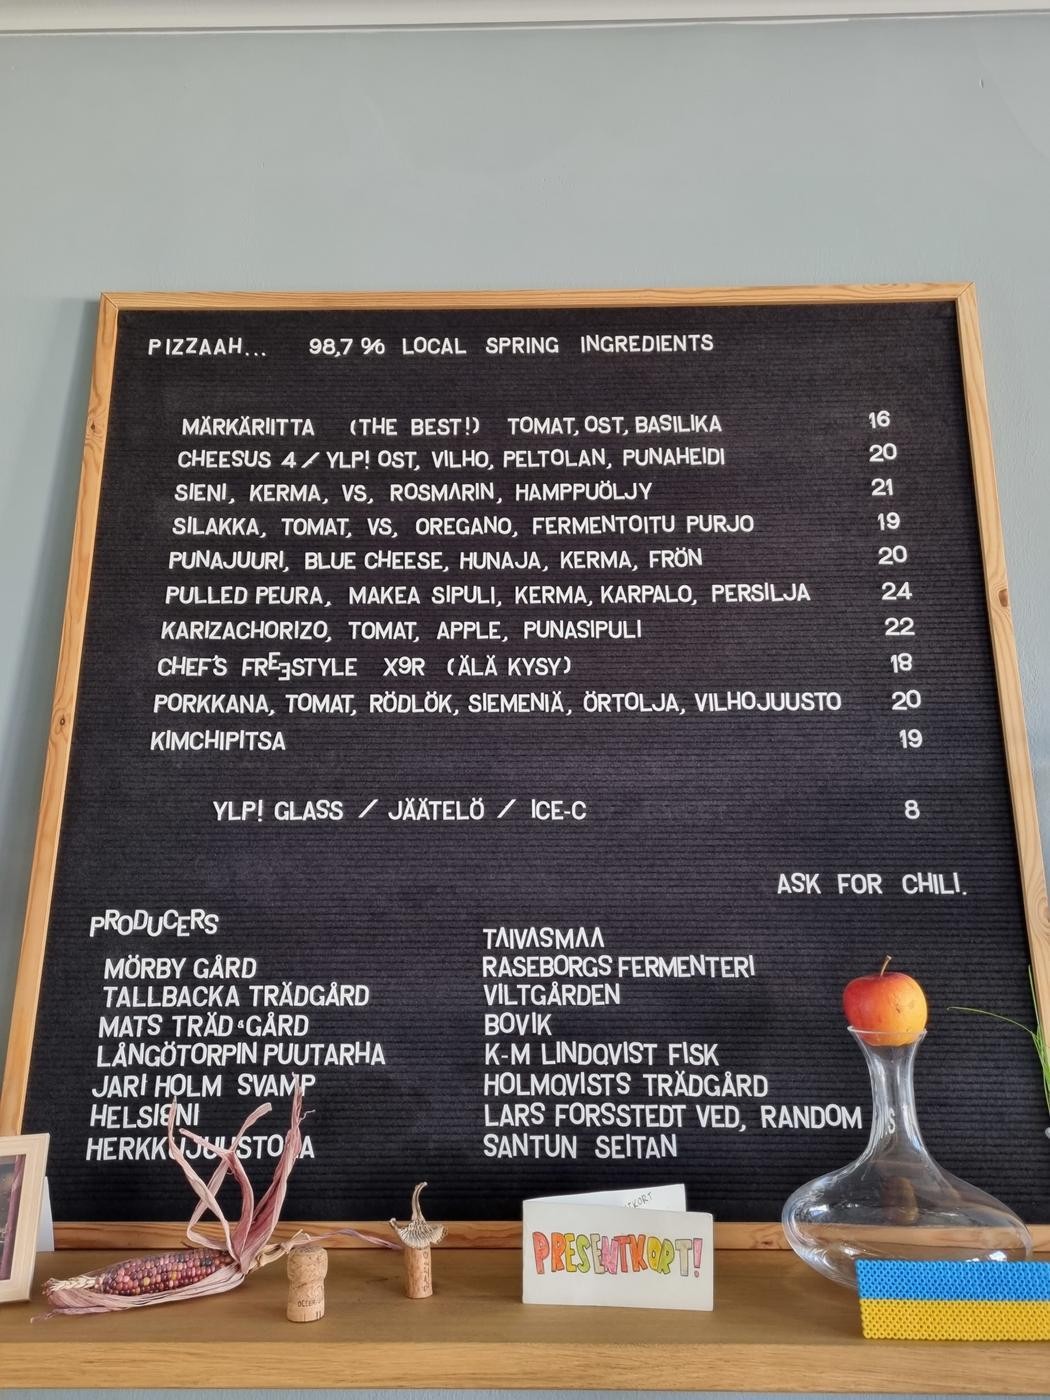 PIZZAAH... 98,7 % LOCAL SPRING INGREDIENTS
MÄRKÄRIITTA (THE BEST!) TOMAT, OST, BASILIKA 16
CHEESUS 4 / YLP! OST, VILHO, PELTOLAN, PUNAHEIDI 20
SIENI, KERMA, VS, ROSMARIN, HAMPPUÖLJY 21
SILAKKA, TOMAT, VS, OREGANO, FERMENTOITU PURJO 19
PUNAJUURI, BLUE CHEESE, HUNAJA, KERMA, FRÖN 20
PULLED PEURA, MAKEA SIPULI, KERMA, KARPALO, PERSILJA 24
KARIZACHORIZO, TOMAT, APPLE, PUNASIPULI 22
CHEF'S FREESTYLE X9R (ÄLÄ KYSY) 18
PORKKANA, TOMAT, RÖDLÖK, SIEMENIÄ, ÖRTOLJA, VILHOJUUSTO 20
KIMCHIPITSA 19
YLP! GLASS / JÄÄTELÖ / ICE-C 8
ASK FOR CHILI.
PRODUCERS
MÖRBY GÅRD
TALLBACKA TRÄDGÅRD
MATS TRÄD & GÅRD
LÅNGÖTORPIN PUUTARHA
JARI HOLM SVAMP
HELSIENI
TAIVASMAA
RASEBORGS FERMENTERI
VILTGÅRDEN
BOVIK
K-M LINDQVIST FISK
HOLMQVISTS TRÄDGÅRD
LARS FORSSTEDT VED, RANDOM
SANTUN SEITAN
PRESENTKORT!